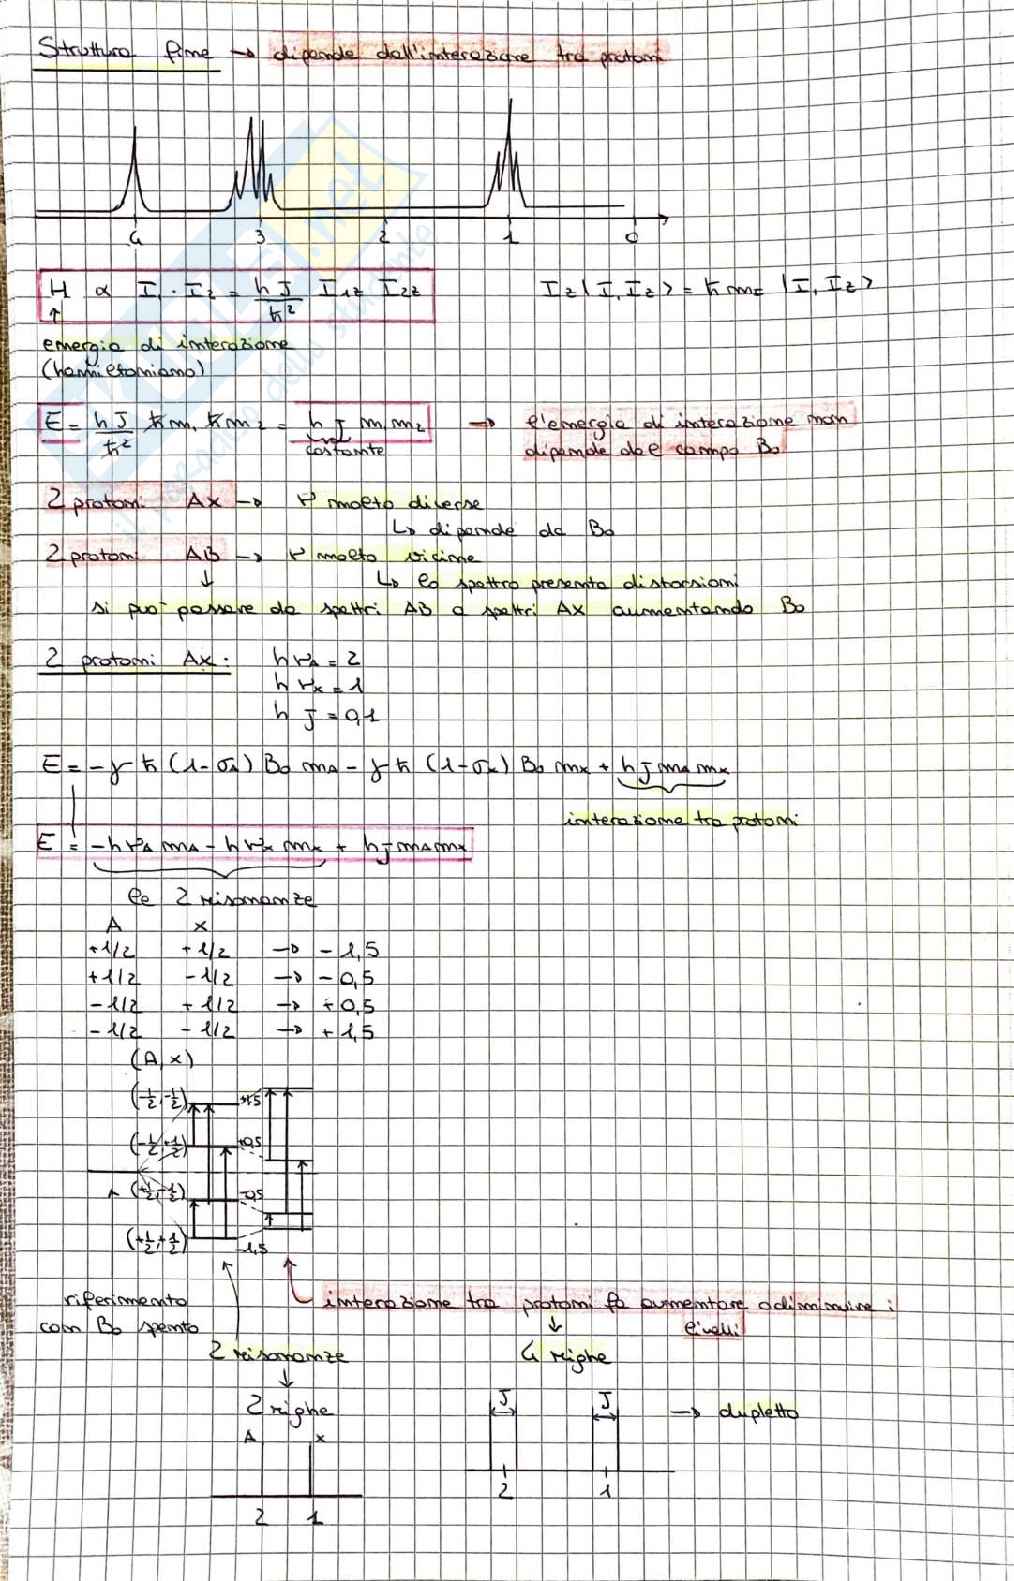 Struttura fine → dipende dall'interazione tra protoni
4 3 2 1 0
H ∝ I₁ · I₂ = hJ/ħ² I₁z I₂z
Iz|I, Iz> = ħ m= |I, Iz>
↑
energia di interazione
(hamiltoniano)
E = hJ/ħ² ħm₁ ħm₂ = h J m₁m₂ → l'energia di interazione non
costante
dipende dal campo B₀
2 protoni AX → ν molto diverse
↳ dipende da B₀
2 protoni AB → ν molto vicine
↓ ↳ lo spettro presenta distorsioni
si può passare da spettri AB a spettri AX aumentando B₀
2 protoni AX: hνA = 2
hνx = 1
h J = 0,1
E = -γ ħ (1-σA) B₀ mA - γ ħ (1-σx) B₀ mx + hJmAmx
interazione tra protoni
E = -hνA mA - hνx mx + hJmAmx
le 2 risonanze
A x
+1/2 +1/2 → -1,5
+1/2 -1/2 → -0,5
-1/2 +1/2 → +0,5
-1/2 -1/2 → +1,5
(A,x)
(-1/2,-1/2) +1,5
(-1/2,+1/2) +0,5
(+1/2,-1/2) -0,5
(+1/2,+1/2) -1,5
riferimento
con B₀ spento
interazione tra protoni fa aumentare o diminuire i
livelli
2 risonanze
↓
4 righe
↓
2 righe
A x
2 1
J J → dupletto
2 1